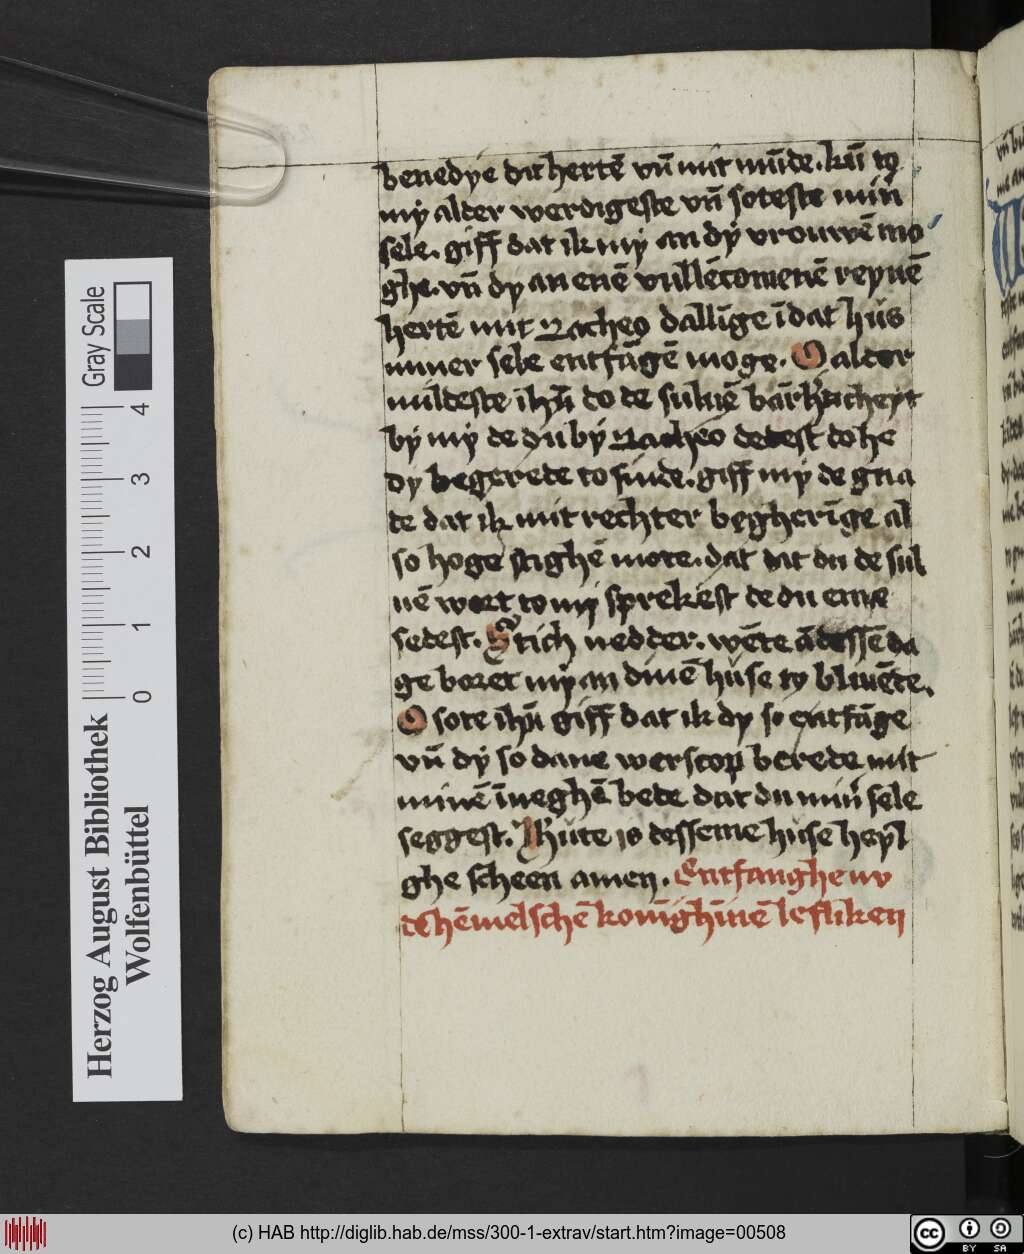 benedye dit hertē vn̄ mit mūde. kū to
my alder werdigeste vn̄ soteste min
sele. giff dat ik my an dy vrouwē mo
ghe. vn̄ dy an enē vullēcomenē reynē
hertē mit zacheo dallīge ī dat hůs
miner sele entfāgē moge. O alder
mildeste ihū do de suluē bārhticheyt
by my de du by zacheo dedest do he
dy begerede to sinde. giff my de gna
de dat ik mit rechter begherīge al
so hoge stighē mote. dat du de sul
uē wort to my sprekest de du eme
sedest. Stich nedder. wēte ā dessē da
ge boret my an dinē huse to bliuēde.
O sote ihū giff dat ik dy so entfāge
vn̄ dy so dane werscop berede mit
minē īneghē bede dat du min sele
seggest. Hute is desseme huse heyl
ghe scheen amen. Entfanghe uv
dē hēmelschē konīghīnē lefliken
Herzog August Bibliothek
Wolfenbüttel
0 1 2 3 4
Gray Scale
(c) HAB http://diglib.hab.de/mss/300-1-extrav/start.htm?image=00508
cc BY SA